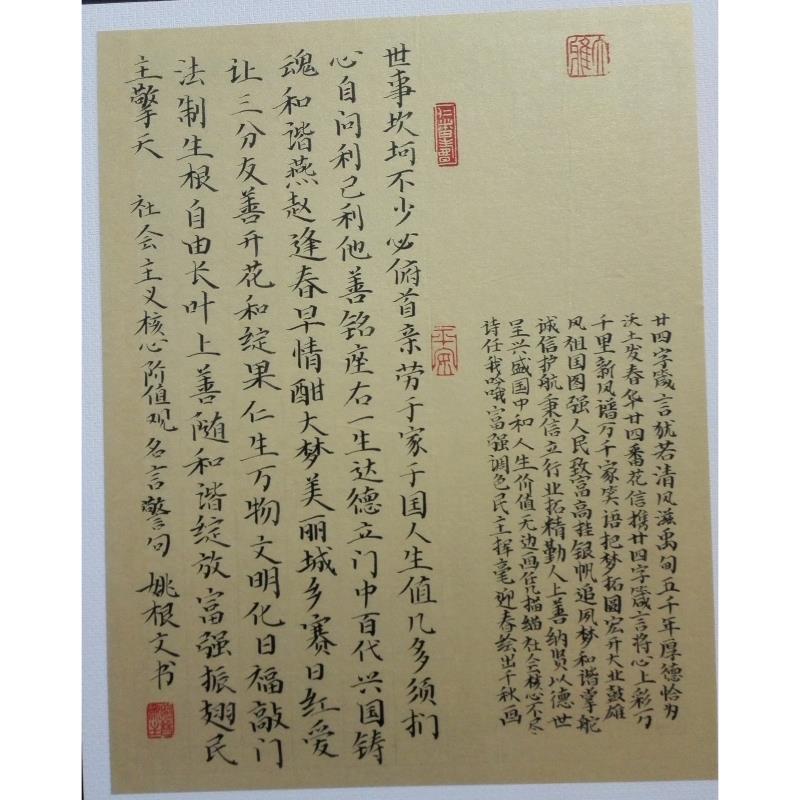 廿四字箴言犹若清风滋禹甸五千年厚德恰为
沃土发春华廿四番花信携廿四字箴言将心上彩万
千里新风谱万千家笑语把梦拓圆宏开大业鼓雄
风祖国图强人民致富高挂银帆追夙梦和谐掌舵
诚信护航秉信立行业拓精勤人上善纳贤以德世
呈兴盛国中和人生价值无边画任几描绘社会核心不尽
诗任我吟哦富强调色民主挥毫迎春绘出千秋画
世事坎坷不少必俯首亲劳于家于国人生值几多须扪
心自问利己利他善铭座右一生达德立门中百代兴国铸
魂和谐燕赵逢春早情酣大梦美丽城乡赛日红爱
让三分友善开花和绽果仁生万物文明化日福敲门
法制生根自由长叶上善随和谐绽放富强振翅民
主擎天 社会主义核心价值观名言警句 姚根文书